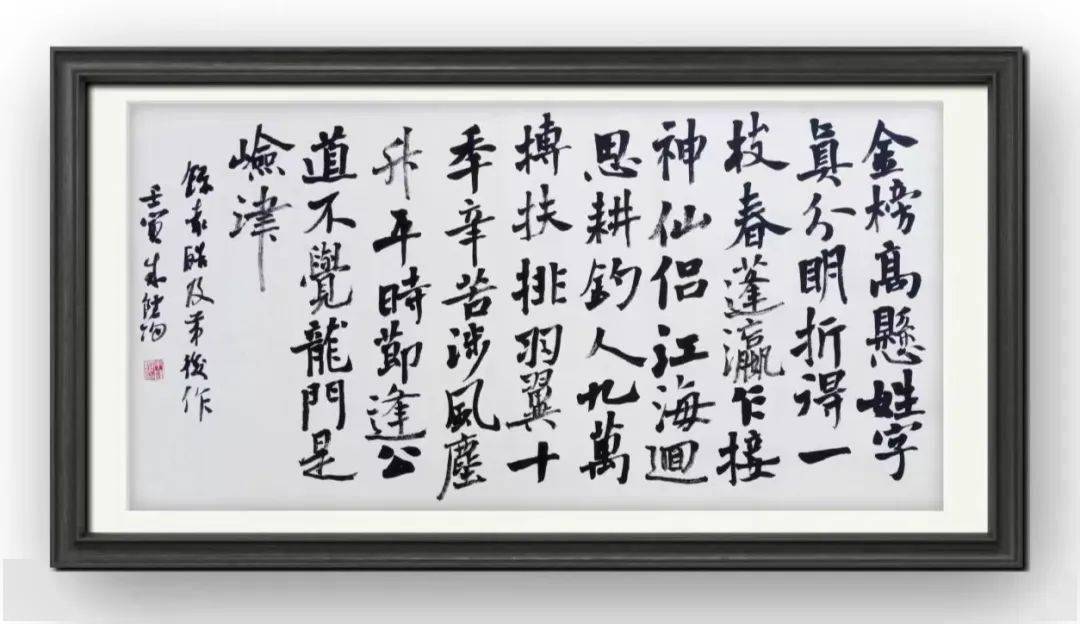 金榜高懸姓字
眞分明折得一
枝春蓬瀛乍接
神仙侣江海迴
思耕釣人九萬
摶扶排羽翼十
秊辛苦涉風塵
升平時節逢公
道不覺龍門是
嶮津
錄袁皓及第後作
壬寅朱